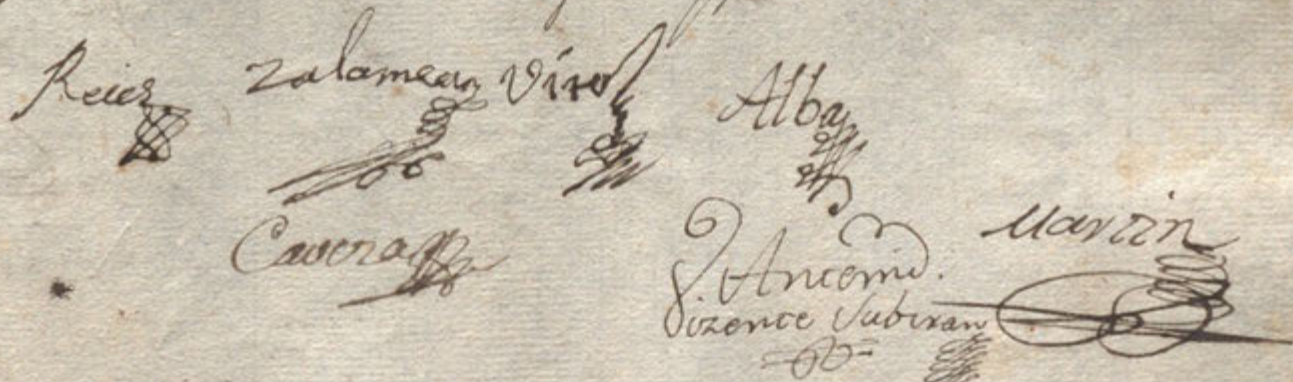 Reies Zalamea Viro Alba
Martin
Cavera
Antonio
Vizente Subiran